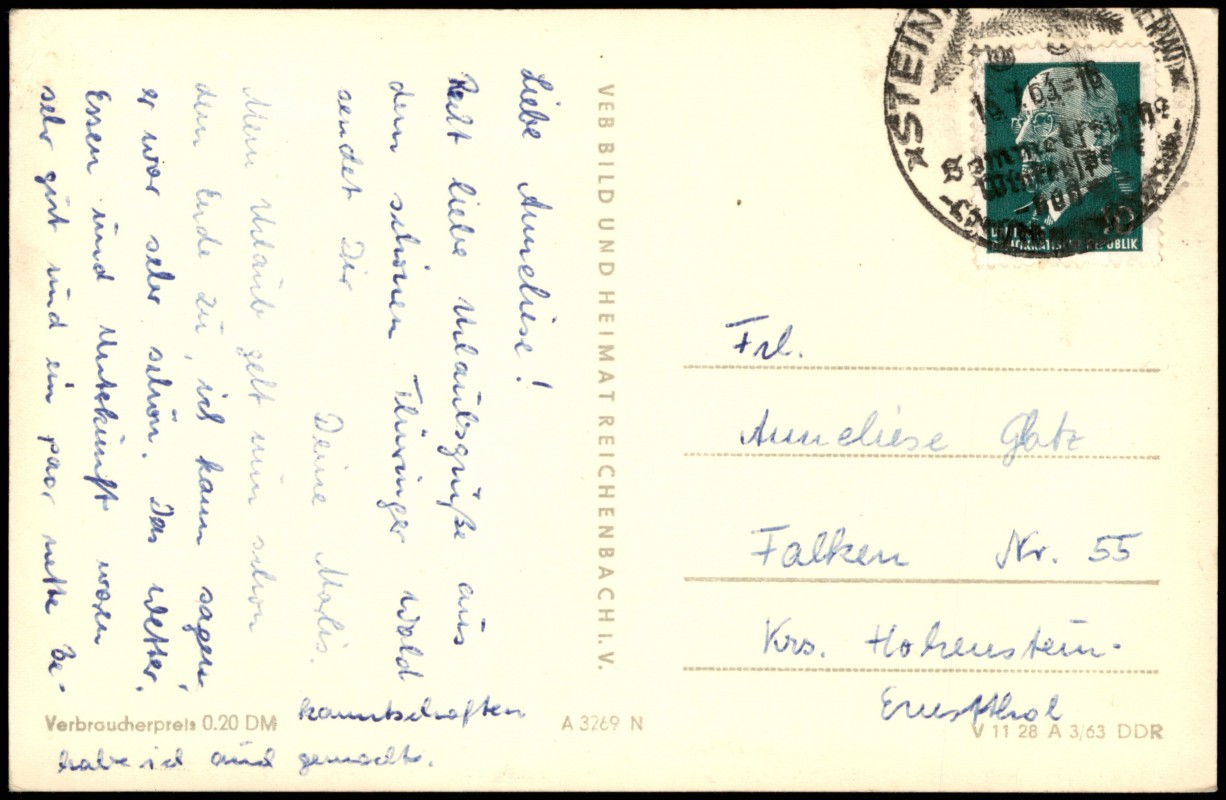 Liebe Anneliese!
Recht liebe Urlaubsgrüße aus
dem schönen Thüringer Wald
sendet Dir
Deine Marlis.
Mein Urlaub geht nun schon
dem Ende zu, ich kann sagen,
er war sehr schön. Das Wetter,
Essen und Unterkunft waren
sehr gut und ein paar nette Be-
kanntschaften
habe ich auch gemacht.
VEB BILD UND HEIMAT REICHENBACH i. V.
STEIN
ERWD
16.7.63-16
Sommerfrische
DEMOKRATISCHE REPUBLIK
Frl.
Anneliese Glatz
Falken Nr. 55
Krs. Hohenstein-
Ernstthal
Verbraucherpreis 0.20 DM
A 3269 N
V 11 28 A 3/63 DDR